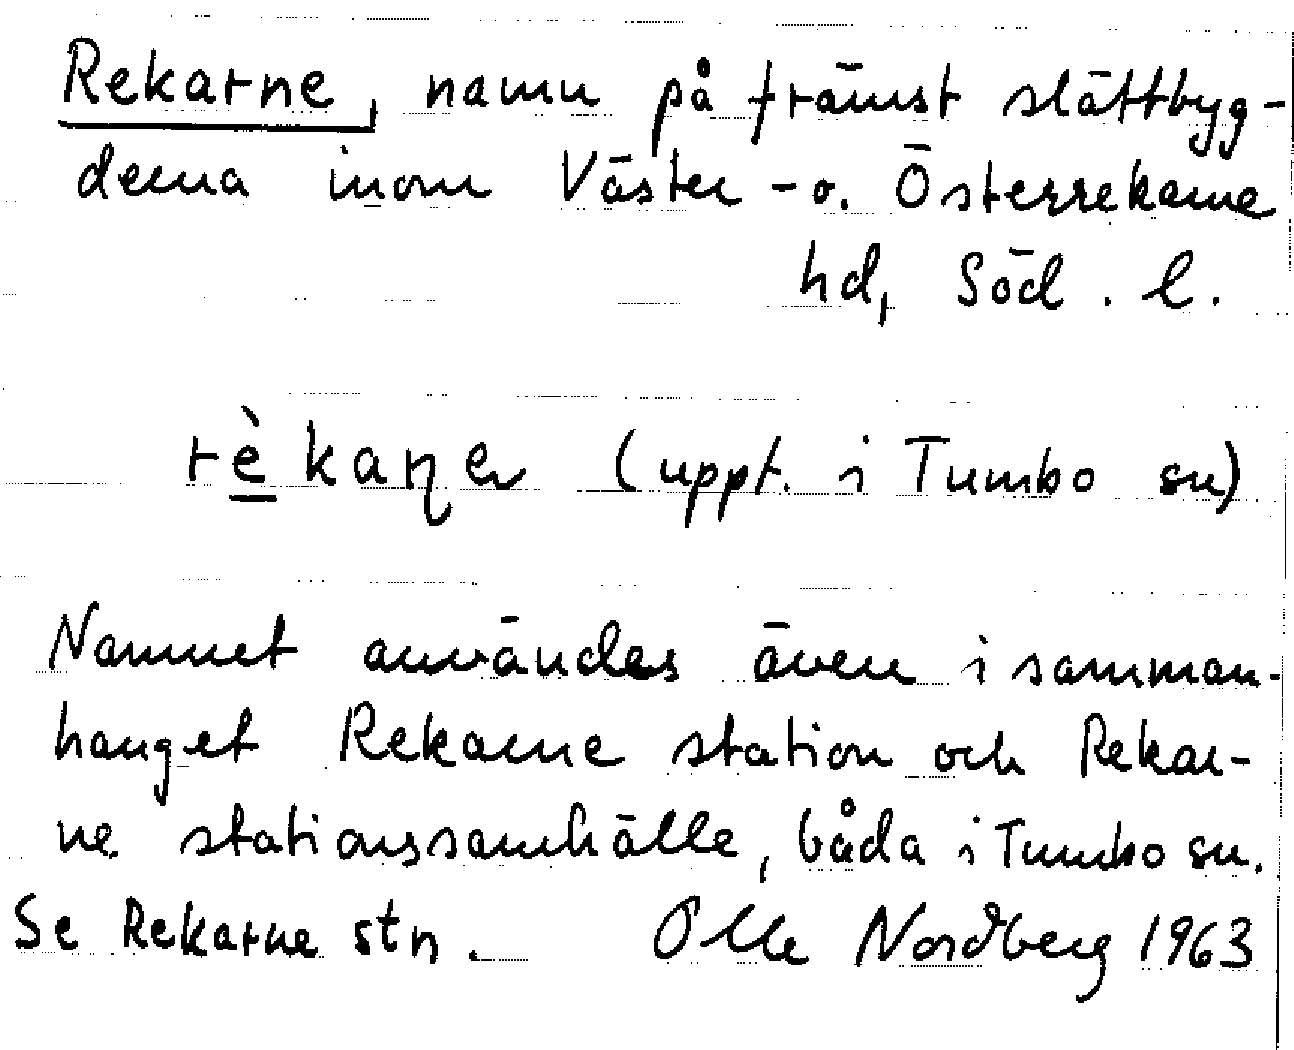 Rekarne, namn på främst slättbyg-
derna inom Väster- o. Österrekarne
hd, Söd. l.
rè̲kaɳer (uppt. i Tumbo sn)
Namnet användes även i samman-
hanget Rekarne station och Rekar-
ne stationssamhälle, båda i Tumbo sn.
Se Rekarne stn. Olle Nordberg 1963